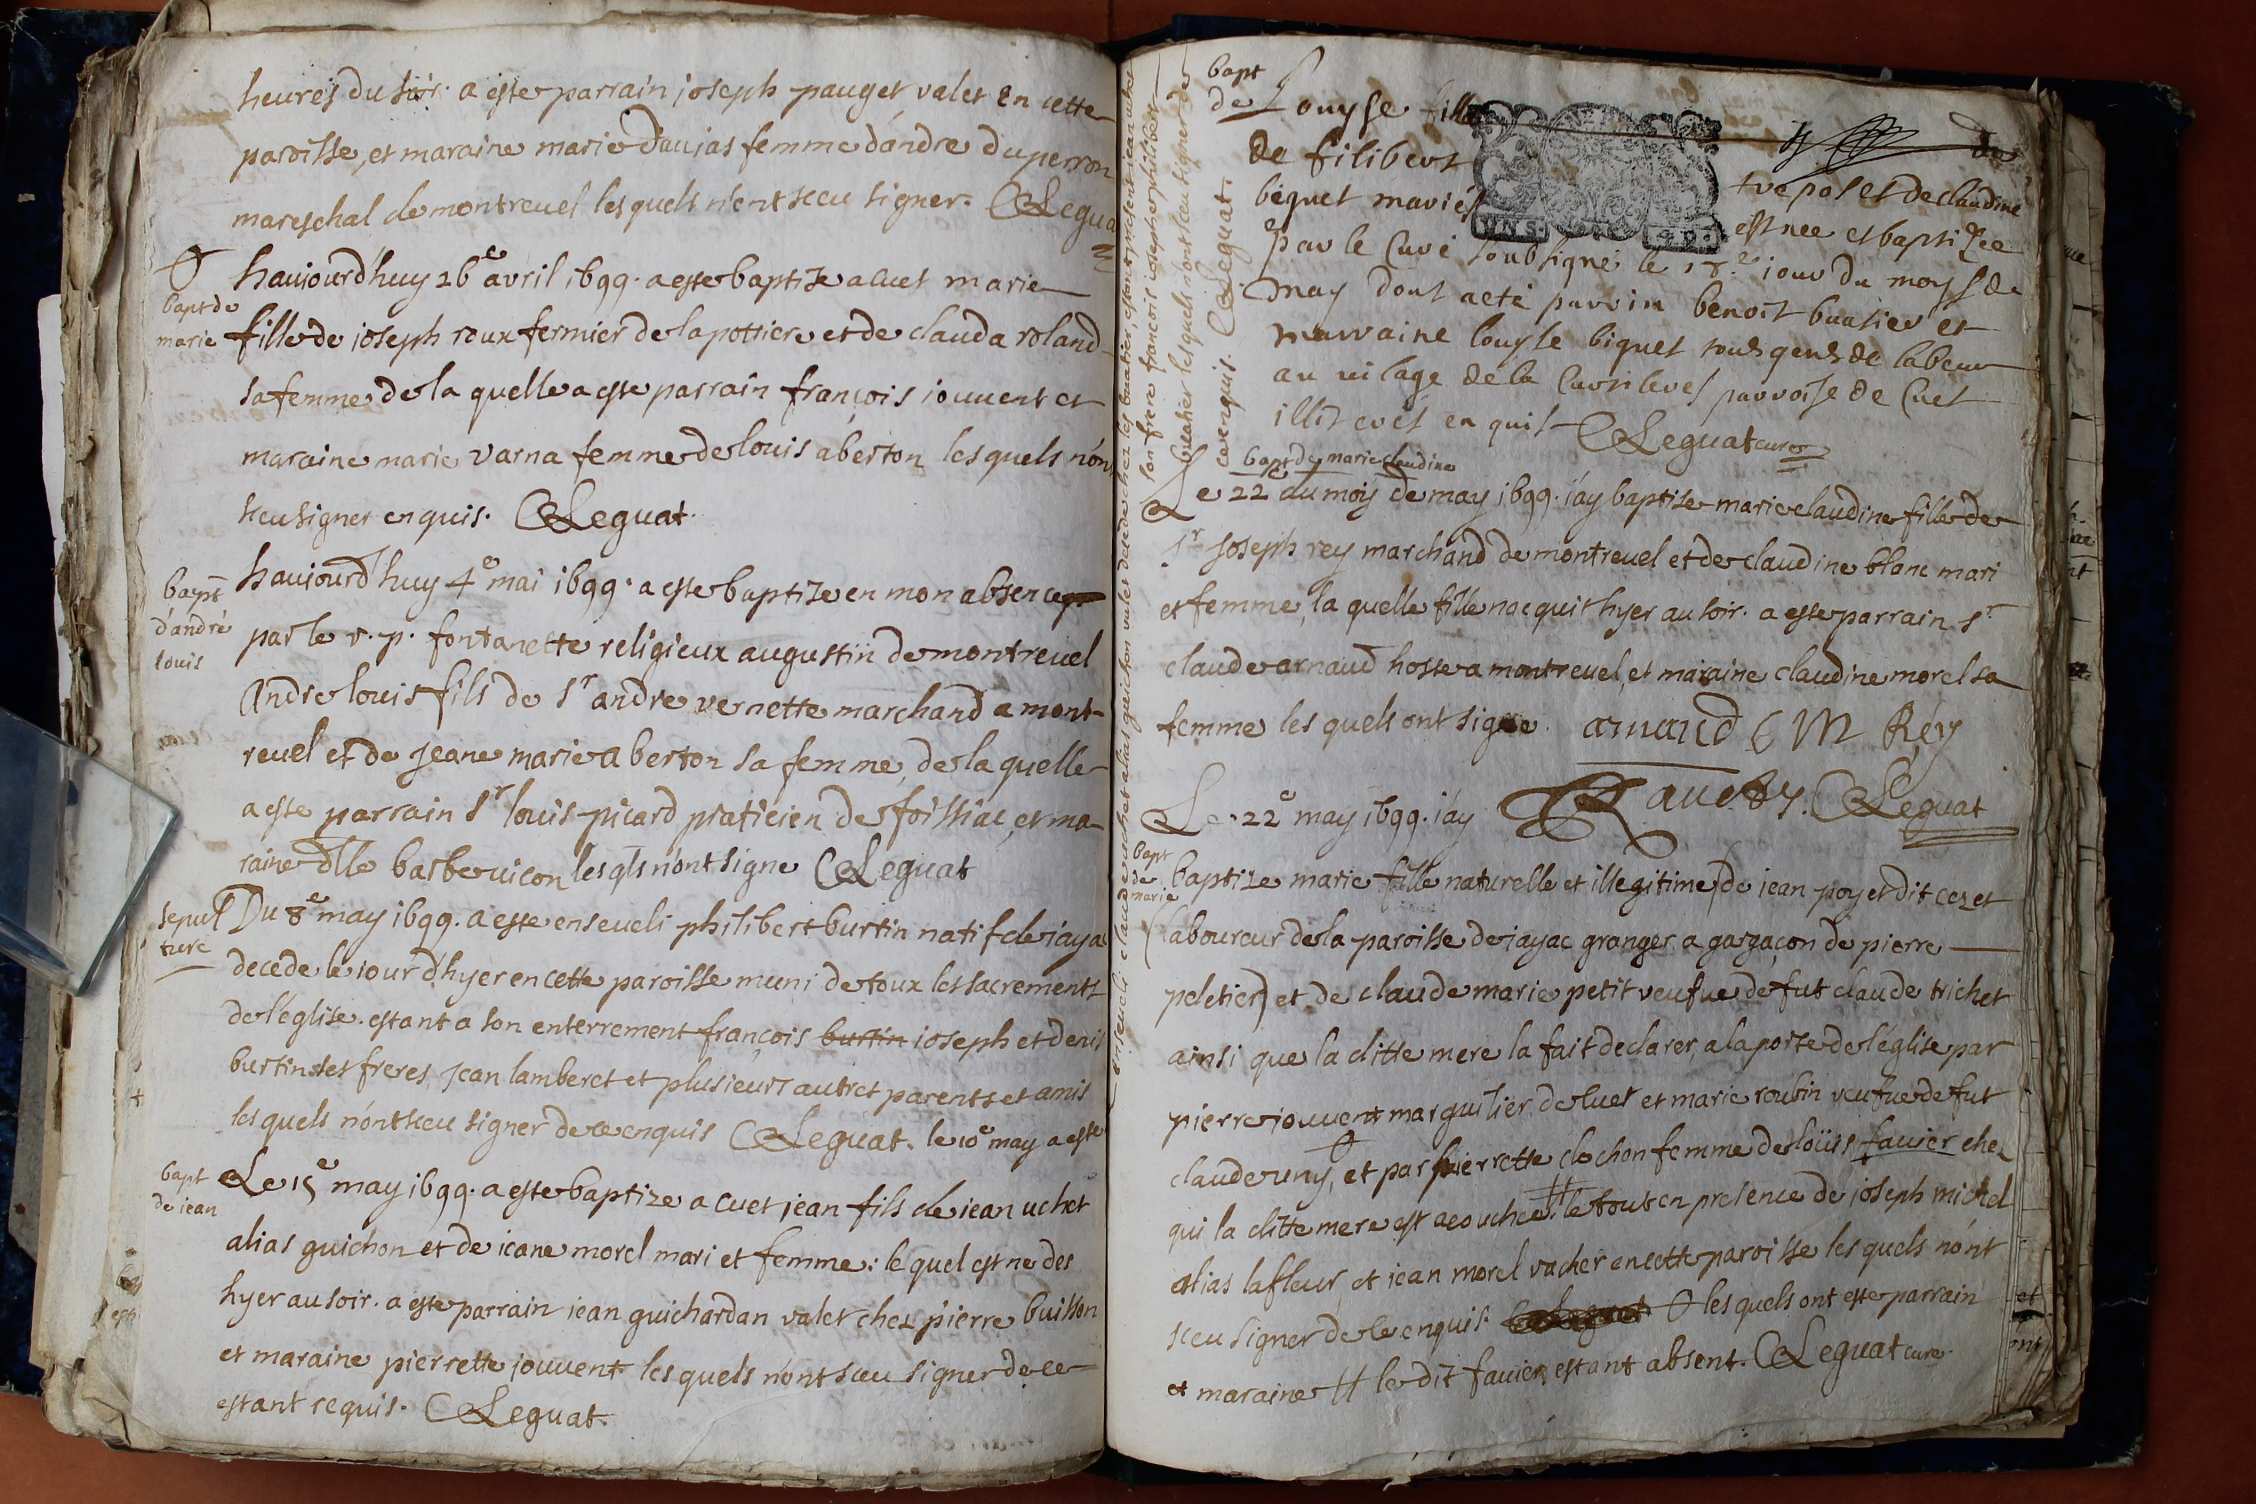 heures du soir. a este parrain joseph pauget valet en cette
paroisse, et maraine marie daujas femme d'andre duperron
mareschal de montrevel les quels n'ont sceu signer. CLeguat
haujourd'huy 26e avril 1699. a este baptize a cuet marie
bapt de
marie
fille de joseph roux fermier de la pottiere et de clauda roland
sa femme, de la quelle a este parrain françois jouvent et
maraine marie varna femme de louis aberton les quels n'ont
sceu signer enquis. CLeguat.
haujourd'huy 4e mai 1699. a este baptize en mon absence
bapt
d'andré
louis
par le r. p. fontanette religieux augustin de montrevel
Andre louis fils de sr andre vernette marchand a mont-
revel et de jeane marie aberton sa femme, de la quelle
a este parrain sr louis picard praticien de foissiac, et ma-
raine dlle barbe vicon les qls n'ont signe CLeguat
sepul
ture
Du 8e may 1699. a este enseveli philibert burtin natif de jayac
decede le jour d'hyer en cette paroisse muni de toux les sacrements
de l'église. estant a son enterrement françois burtin joseph et denis
burtin ses freres, jean lamberet et plusieurs autres parents et amis
les quels n'ont sceu signer de ce enquis CLeguat. le 10e may a este
bapt
de jean
Le 15e may 1699. a este baptize a cuet jean fils de jean uchet
alias guichon et de jeane morel mari et femme: le quel est ne des
hyer au soir. a este parrain jean guichardan valet chez pierre buisson
et maraine pierrette jouvent les quels n'ont sceu signer de ce
estant requis. CLeguat.
enseveli claude uchet alias guichon valet de chez les buatier, estant present jean uchet
son frere françois joseph et philibert
buatier les quels n'ont sceu signer de
ce enquis. CLeguat.
bapt
de Louyse fille
de filibert
trepos et de claudine
bequet mariés
est nee et baptizee
par le Curé soubsigné le 18e jour du moys de
may dont acte parrin benoit buatier et
marraine louyse biquet tous gens de labeur
au vilage de la Curtileves parroise de Cuet
illit erés en quis CLeguat cure
bapt de marie claudine
Le 22e du mois de may 1699. j'ay baptise marie claudine fille de
sr joseph rey marchand de montrevel et de claudine blanc mari
et femme, la quelle fille nacquit hyer au soir. a este parrain sr
claude arnaud hoste a montrevel, et maraine claudine morel sa
femme les quels ont signe. arnaud C M Réy
CLeguat
Le 22e may 1699. j'ay
bapt
de
marie
baptize marie fille naturelle et illegitime (de jean poyet dit cezet
laboureur de la paroisse de jayac granger a gargaçon de pierre
peletier) et de claude marie petit veufve de fut claude trichet
ainsi que la ditte mere la fait declarer, a la porte de l'église par
pierre jouvent marguilier de cuet et marie roubin veufve de fut
claude uny, et par pierrette clochon femme de louis favier chez
qui la ditte mere est acouchee. le tout en presence de joseph michel
alias lafleur, et jean morel vacher en cette paroisse les quels n'ont
sceu signer de ce enquis. les quels ont este parrain
et maraine H le dit favier estant absent. CLeguat cure.